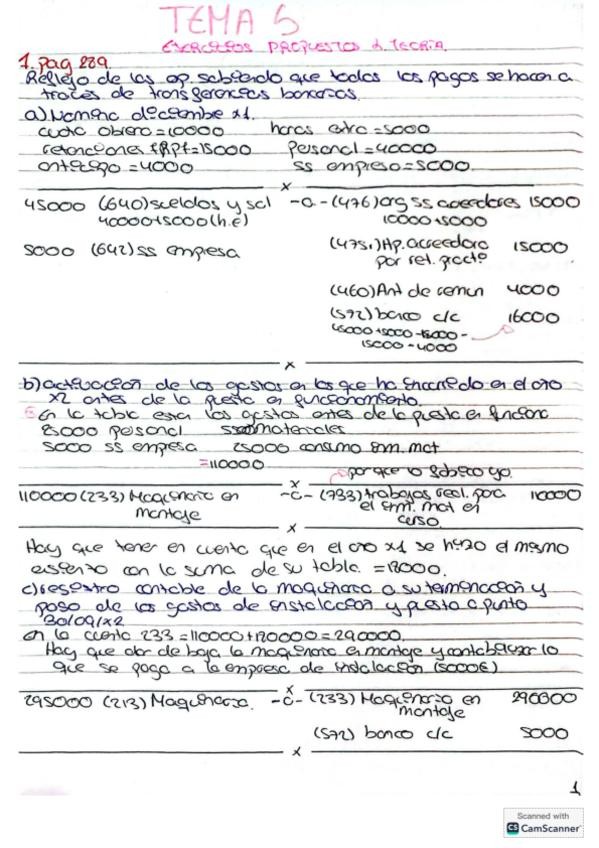 TEMA 5
EJERCICIOS PROPUESTOS d. TEORÍA.
1. pag 289.
Reflejo de las op. sabiendo que todos los pagos se hacen a
través de transferencias bancarias.
a) Nomina diciembre x1.
cuota obrera = 10000 horas extra = 5000
retenciones IRPF = 15000 Personal = 40000
anticipo = 4000 SS empresa = 5000
x
45000 (640) sueldos y sal -a- (476) org ss acreedores 15000
40000+5000 (h.E) 10000+5000
5000 (642) ss empresa (4751) Hp. acreedora 15000
por ret. pract
(460) Ant de remun 4000
(572) banco c/c 16000
45000+5000-15000-
15000-4000
x
b) activación de los gastos en los que ha incurrido en el año
x2 antes de la puesta en funcionamiento.
En la tabla estan los gastos antes de la puesta en func
personal materiales
5000 ss empresa 25000 consumo mat
= 110000
porque lo fabrico yo.
x
110000 (233) Maquinaria en -a- (733) trabajos real. para 110000
montaje el inm. mat en
curso.
x
Hay que tener en cuenta que en el año x1 se hizo el mismo
asiento con la suma de su tabla. =
c) registro contable de la maquinaria a su terminación y
pago de los gastos de instalación y puesta a punto
30/09/x2
en la cuenta 233 = 110000 + = 290000.
Hay que dar de baja la maquinaria en montaje y contabilizar lo
que se paga a la empresa de instalación (5000€)
x
295000 (213) Maquinaria. -a- (233) Maquinaria en 290000
montaje
(572) banco c/c 5000
x
1
Scanned with
CS CamScanner